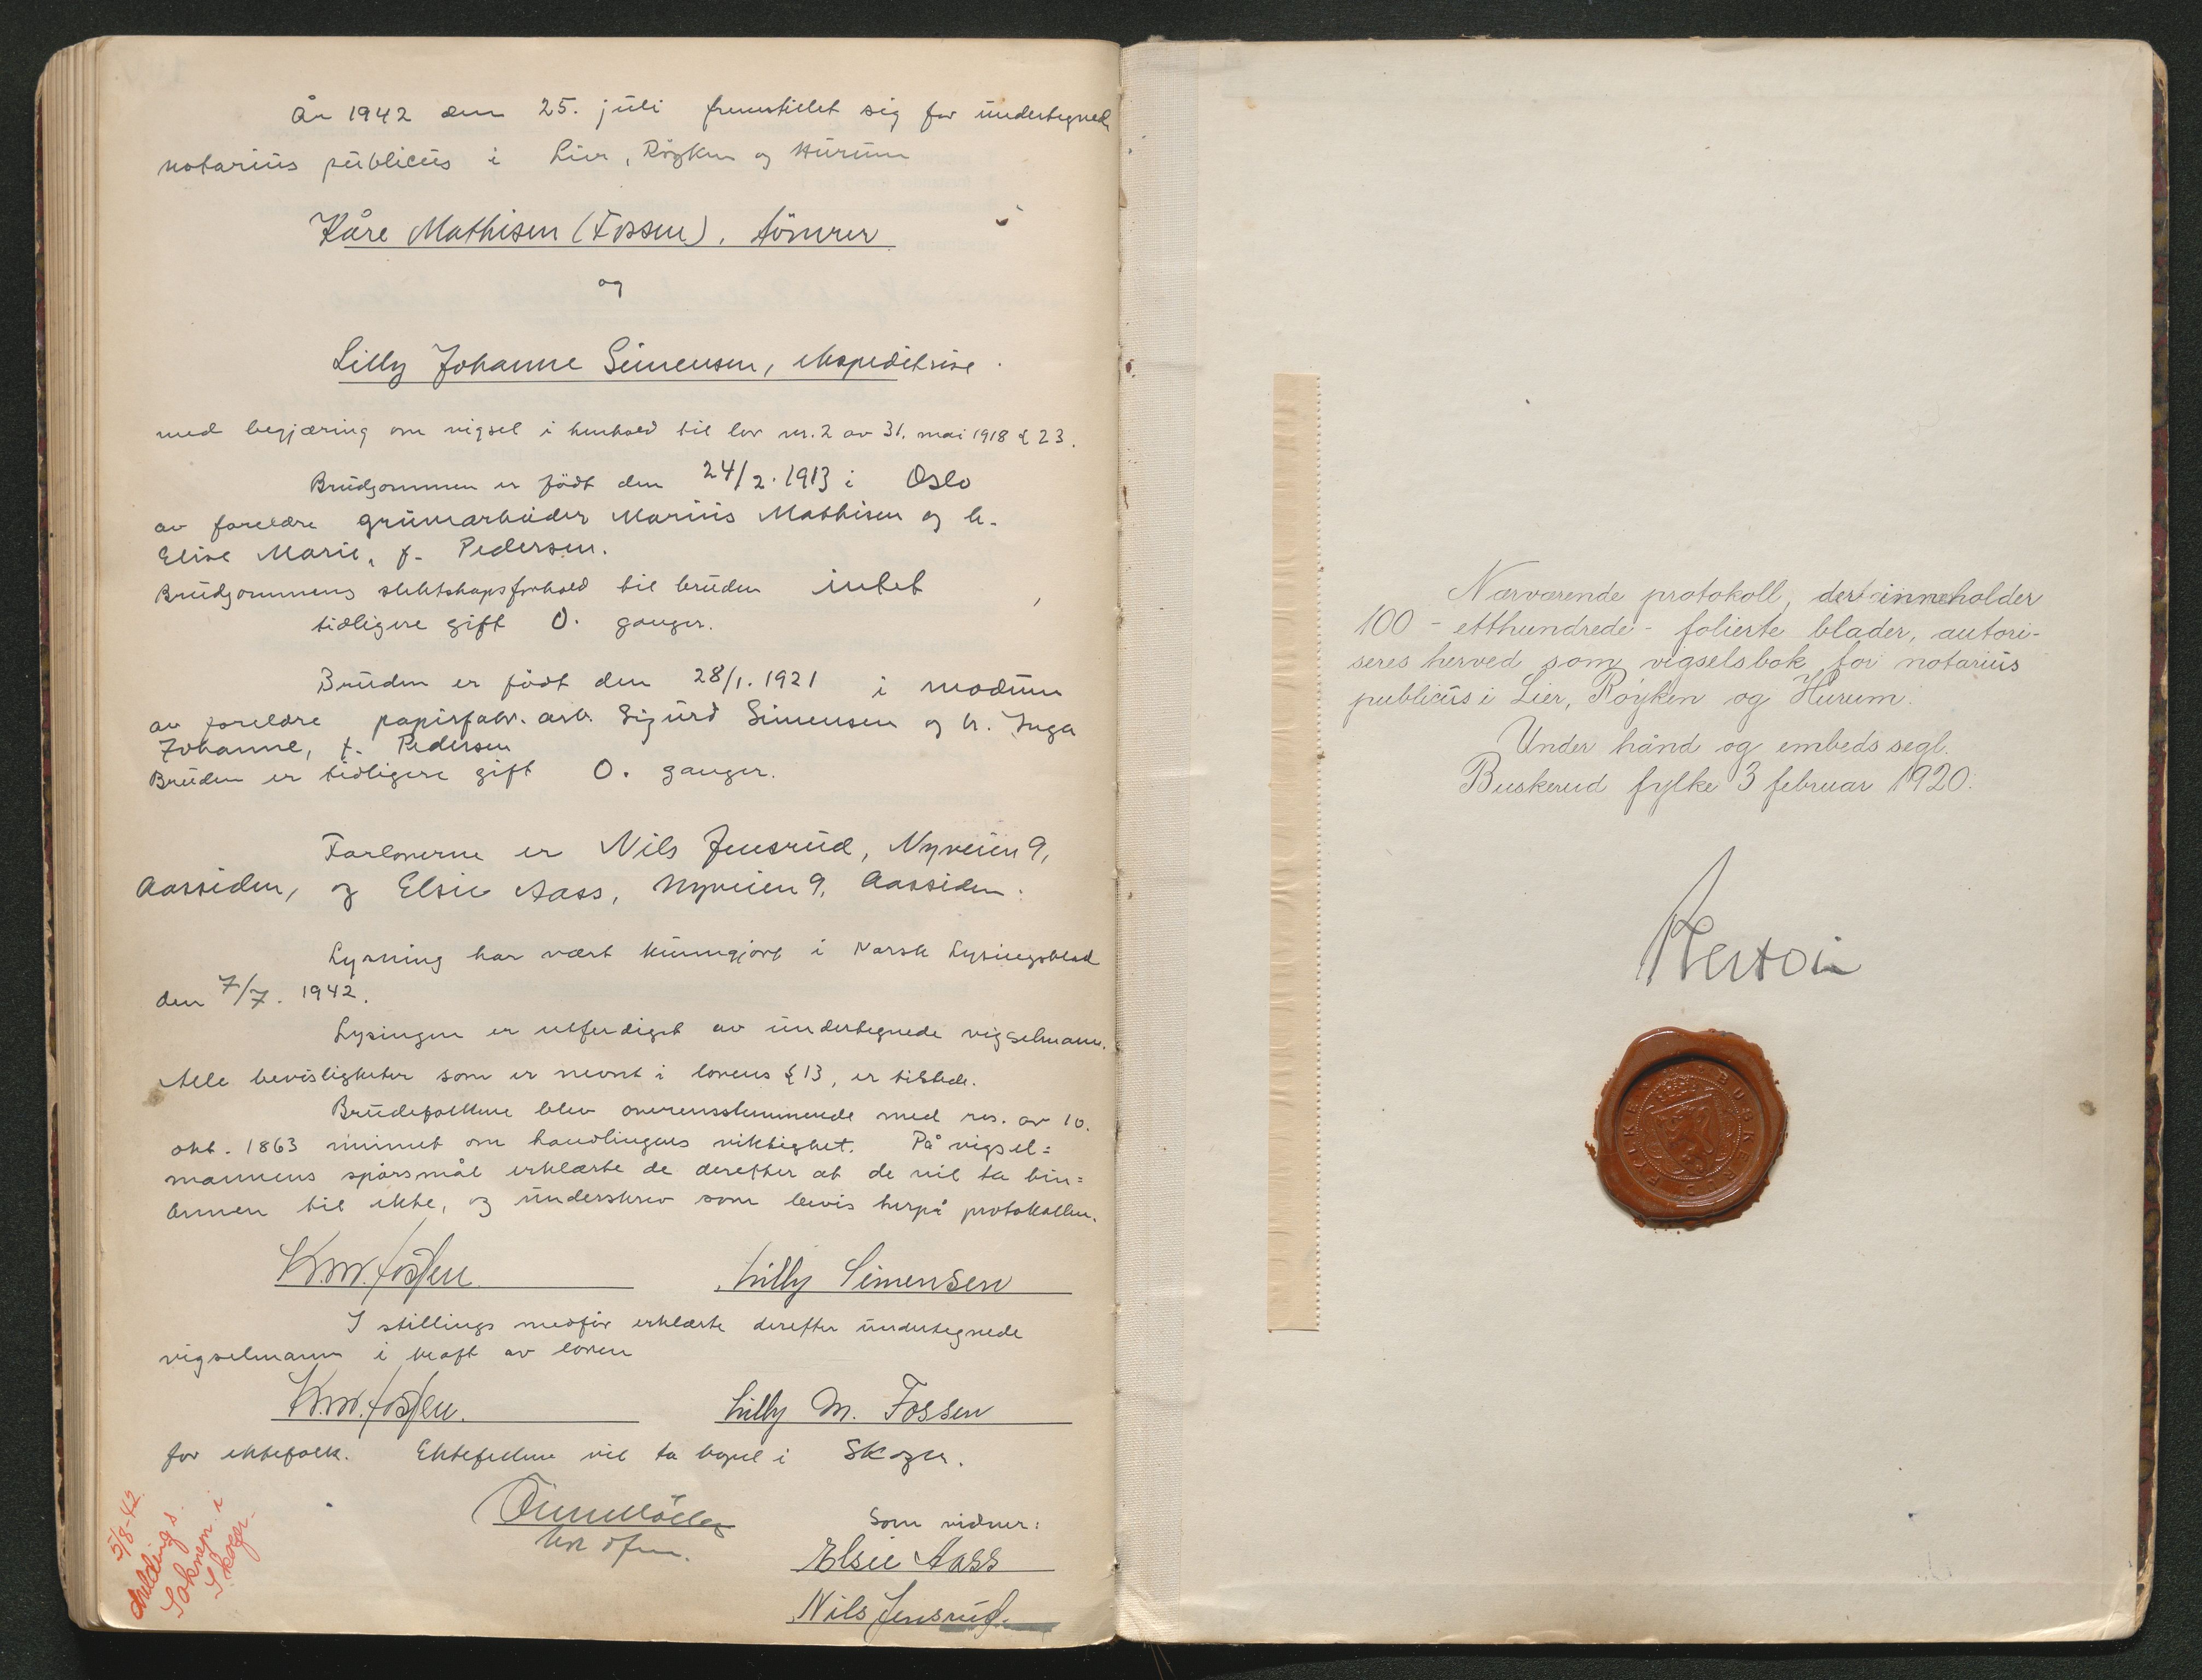 År 1942 den 25. juli fremstillet sig for undertegnede
notarius publicus i Lier, Röyken og Hurum
Kåre Mathisen (Fossen), tömrer
og
Lilly Johanne Simensen, ekspeditrise.
med begjæring om vigsel i henhold til lov nr. 2 av 31. mai 1918 § 23.
Brudgommen er födt den 24/2. 1913 i Oslo
av foreldre gruvearbeider Marius Mathisen og h.
Elise Marie, f. Pedersen.
Brudgommens slektskapsforhold til bruden intet,
tidligere gift 0. ganger.
Bruden er födt den 28/1. 1921 i Modum
av foreldre papirfabr. arb. Sigurd Simensen og h. Inga
Johanne, f. Pedersen
Bruden er tidligere gift 0. ganger.
Forloverne er Nils Jensrud, Nyveien 9,
Aassiden, og Elsie Aass, Nyveien 9, Aassiden.
Lysning har vært kunngjort i Norsk Lysingsblad
den 7/7. 1942.
Lysingen er utferdiget av undertegnede vigselmann.
Alle bevisligheter som er nevnt i lovens § 13, er tilstede.
Brudefolkene blev overensstemmende med res. av 10.
okt. 1863 minnet om handlingens viktighet. På vigsel=
mannens spörsmål erklærte de derefter at de vil ta hin=
annen til ekte, og underskrev som bevis herpå protokollen.
K.M. Fossen Lilly Simensen
I stillings medför erklærte derefter undertegnede
vigselmann i kraft av loven
K.M. Fossen. Lilly M. Fossen
for ektefolk. Ektefellene vil ta bopel i Skoger.
Som vidner:
Elsie Aass
Nils Jensrud.
5/8-42
Melding s.
Soknepr. i
Skoger.
Nærværende protokoll, der inneholder
100 - etthundrede - folierte blader, autori-
seres herved som vigselsbok for notarius
publicus i Lier, Röyken og Hurum.
Under hånd og embeds segl.
Buskerud fylke 3 februar 1920.
BUSKERUD FYLKE